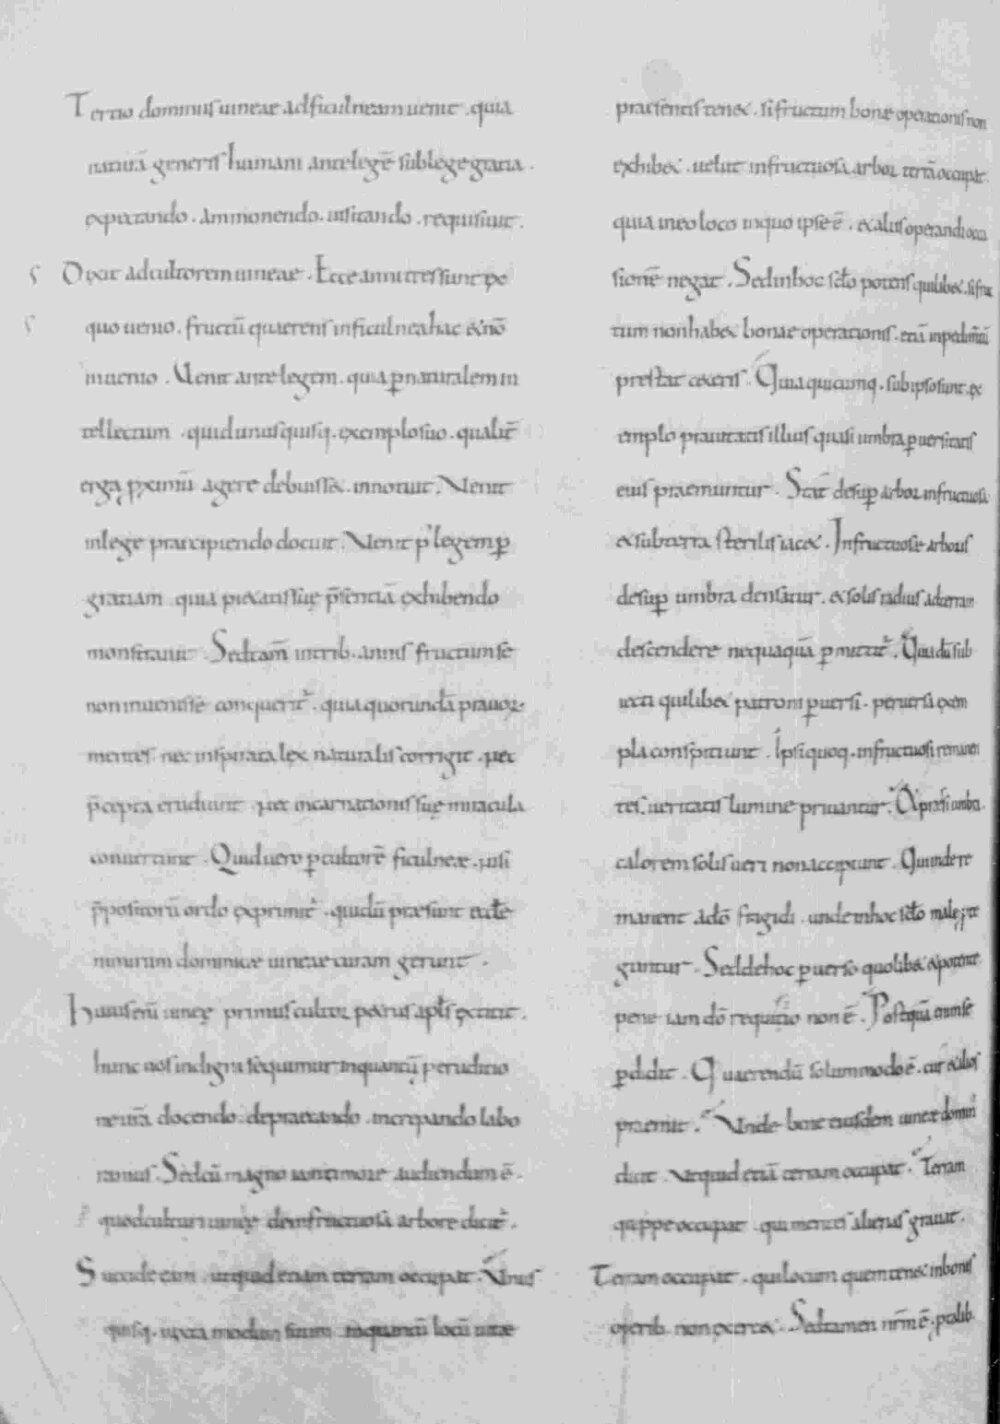 Tertio dominus uineae ad ficulneam uenit . quia
naturā generis humani ante legē sub lege gratia .
expectando . ammonendo . uisitando . requisiuit .
Dixit ad cultorem uineae . Ecce anni tres sunt ex
quo uenio . fructū quaerens in ficulnea hac & nō
inuenio . Uenit ante legem . quia ꝑ naturalem in
tellectum . quid unusquisq . exemplo suo . qualit̄
erga ꝓximū agere debuiss& . innotuit . Uenit
in lege praecipiendo docuit . Uenit p' legem ꝑ
gratiam quia pietatis suę p̄sentiā exhibendo
monstrauit . Sed tam̄ in trib . annis fructum se
non inuenisse conquerit' . quia quorundā prauoꝝ
mentes nec inspirata lex naturalis corrigit . nec
p̄cepta erudiunt . nec incarnationis suę miracula
conuertunt . Quid uero ꝑ cultorē ficulneae . nisi
p̄positorū ordo exprimit' . qui dū praesunt eccłe
nimirum dominicae uineae curam gerunt .
Huius eni uineę primus cultor petrus apłs extitit .
hunc nos indigni sequimur in quantū ꝓ eruditio
ne urā docendo . deprecando . increpando labo
ramus . Sed cū magno iam timore audiendum ē .
quod cultori uineę de infructuosa arbore dicit' .
Succide eam . ut quid etiam terram occupat . Unus
quisq . iuxta modum suum . in quantū locū uitae
praesentis ten& . si fructum bonae operationis non
exhib& . uelut infructuosa arbor terrā occupat .
quia in eo loco in quo ipse ē . & aliis operandi occa
sionē negat . Sed in hoc scło potens quilib& . si fruc
tum non hab& bonae operationis . etiā inpedimtū
prestat c&eris . Quia quicunq . sub ipso sunt . ex
emplo prauitatis illius quasi umbra ꝑuersitatis
eius praemuntur . Stat desuꝑ arbor infructuosa
& sub terra sterilis iac& . Infructuose arboris
desuꝑ umbra densatur . & solis radius ad terram
descendere nequaquā ꝑmittit' . Quia dū sub
iecti quilib& patroni ꝑuersi . peruersa exem
pla conspiciunt . Ipsi quoq . infructuosi remanen
tes . ueritatis lumine priuantur . & prąssi umbra .
calorem solis ueri non accipiunt . Qui inde re
manent a dō frigidi . unde in hoc scło male
guntur . Sed de hoc ꝑuerso quolib& & potente
pene iam dō requisitio non ē . Postquā enim se
ꝑdidit . Quaerendū solummodo ē . cur & alios
praemit . Unde bene eiusdem uineae domini
dicit . ut quid etiā terram occupat . Terram
quippe occupat . qui mentes alienas grauat .
Terram occupat . qui locum quem ten& in bonis
operib . non exerc& . Sed tamen nrm̄ ē . pro lib .